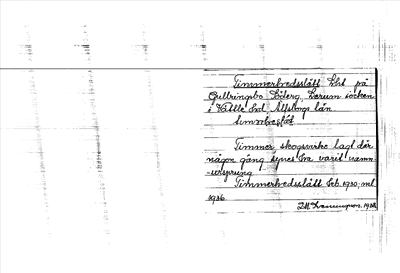 Timmerbredsslätt Lht på
Gullringsbo Säteg. Lerum socken
i Vättle hd. Älfsborgs län.
Timmer skogsvirke lagt där
någon gång synes ha varit namn-
ursprung
Timmerbredsslätt Leb. 1930, ml
1936